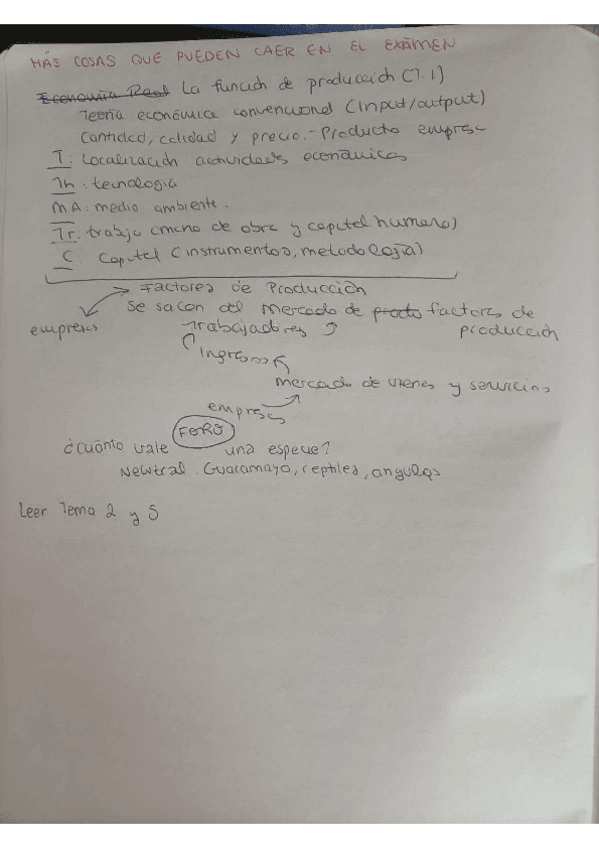 MÁS COSAS QUE PUEDEN CAER EN EL EXÁMEN
Economia Real La función de producción (7.1)
Teoria económica convencional (input/output)
Cantidad, calidad y precio.- Producto empresa
T: Localización actividades económicas
Th: tecnologia
MA: medio ambiente.
Tr: trabajo (mano de obra y capital humano)
C: Capital (instrumentos, metodología)
Factores de Producción
Se sacan del mercado de factores de producción
empresas Trabajadores
Ingresos
mercado de vienes y servicios
empresas
FORO
¿cuánto vale una especie?
Newtral. Guacamayo, reptiles, angulas
Leer Tema 2 y 5